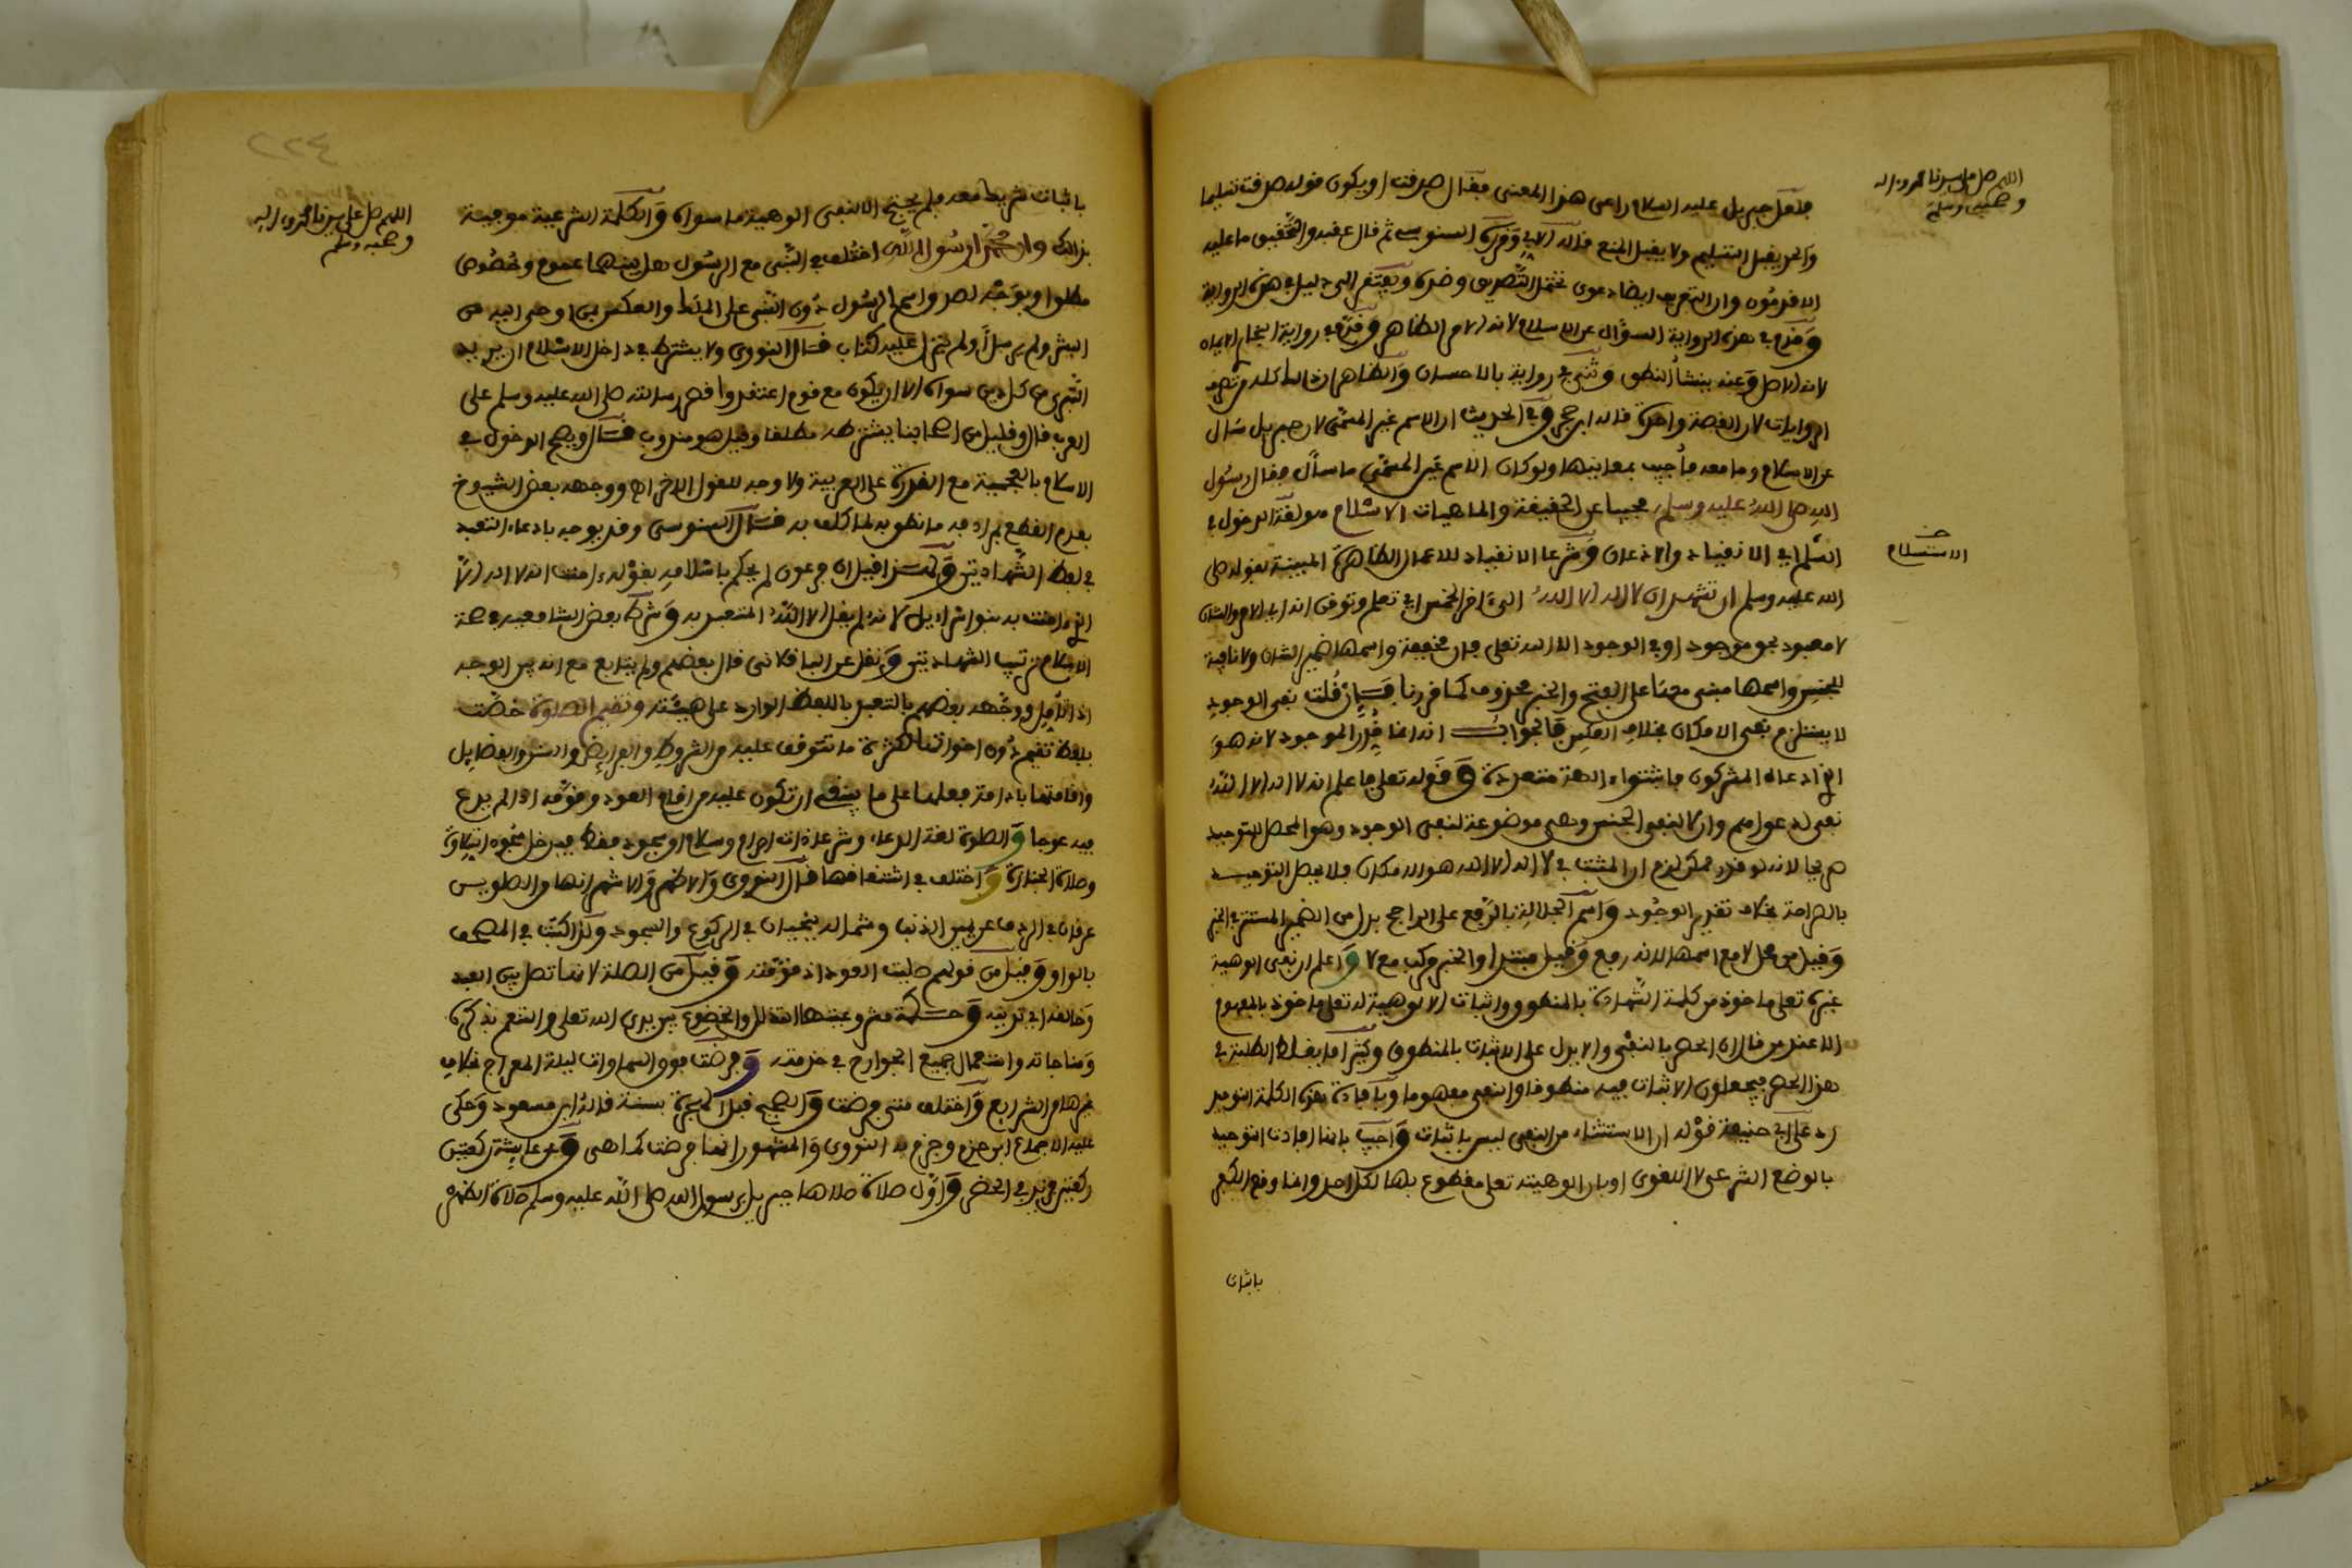 اللهم صل على سيدنا محمد وءاله
وصحبه وسلم
فلعل جبريل عليه السلام راعى هذا المعنى فقال صدقت او يكون قوله صدقت تسليما
والحد يقبل التسليم ولا يقبل المنع قاله الابي وقرره السنوسي ثم قال عقبه والتحقيق ما عليه
الاقدمون وان التعريف ايضا دعوى تحتمل التصديق وضده ويفتقر الى دليل في هذه الرواية
وقدم في هذه الرواية السؤال عن الاسلام لانه الامر الظاهر وقدم في رواية البخاري الايمان
لانه الاصل وعنه ينشأ النطق وثنى في رواية بالاحسان والظاهر ان ذلك كله من تصرف
الروايات لان القصة واحدة قاله ابن حجر وفي الحديث ان الاسم غير المسمى لان جبريل سأل
عن الاسلام وما معه فأجيب بمعانيها ولو كان الاسم عين المسمى ما سأل فقال رسول
الله صلى الله عليه وسلم مجيبا عن الحقيقة والماهيات الاسلام هو لغة الدخول في
الاستسلام
السلم اي الانقياد والاذعان وشرعا الانقياد للاعمال الظاهرة المبينة بقوله صلى
الله عليه وسلم ان تشهد ان لا اله الا الله الى ءاخر الخمس اي تعلم وتوقن انه اي الامر والشان
لا معبود بحق موجود او في الوجود الا الله تعلى فان مخففة واسمها ضمير الشان ولا نافية
للجنس واسمها مبني معها على الفتح والخبر محذوف كما قدرنا فإن قلت نفى الوجود
لا يستلزم نفي الامكان بخلاف العكس فالجواب انه انما قدر الموجود لانه هو
الذي ادعاه المشركون فاثبتوا ءالهة متعددة وقوله تعلى فاعلم انه لا اله الا الله
نفى لدعواهم وان لا لنفي الجنس وهي موضوعة لنفي الوجود وهو المحصل للتوحيد
صريحا لانه لو قدر ممكن لزم ان المثبت في لا اله الا الله هو الامكان فلا يحصل التوحيد
بالصراحة بخلاف تقدير الوجود واسم الجلالة بالرفع على الراجح بدل من الضمير المستتر في الخبر
وقيل من محل لا مع اسمها لانه رفع وقيل مبتدا والخبر مركب مع لا واعلم ان نفي الوهية
غيره تعلى ماخوذ من كلمة الشهادة بالمنطوق واثبات الالوهية له تعلى ماخوذ بالمفهوم
الا عند من قال ان الحصر بالنفي والا يدل على الاثبات بالمنطوق وكثيرا ما يغلط الطلبة في
هذا الحصر فيجعلون الاثبات فيه منطوقا والنفي مفهوما وبافادة هذه الكلمة التوحيد
رد على ابي حنيفة قوله ان الاستثناء من النفي ليس باثبات واجيب بانها افادت التوحيد
بالوضع الشرعي لا اللغوي او بان الوهيته تعلى مقطوع بها لكل احد وانما وقع الكفر
باثبات
٢٢٤
اللهم صل على سيدنا محمد وءاله
وصحبه وسلم
باثبات شريك معه فلم يحتج الا لنفي الوهية ما سواه والكلمة الشرعية موفية
بذالك وان محمدا رسول الله اختلف في النبي مع الرسول هل بينهما عموم وخصوص
مطلق او بوجه لصدق اسم الرسول دون النبي على الملك والعكس في من اوحي اليه من
البشر ولم يرسل ولم ينزل عليه كتاب قال النووي ولا يشترط في داخل الاسلام ان يريد
التبري من كل دين سواه الا ان يكون مع قوم اعتقدوا قصر رسالته صلى الله عليه وسلم على
العرب قال وقليل من اصحابنا يشترطه مطلقا وقيل هو مندوب قال ويصح الدخول في
الاسلام بالعجمية مع القدرة على العربية ولا وجه للقول الاخر اه ووجهه بعض الشيوخ
بعدم القطع بمرادفه ما نطق به لما كلف به قال السنوسي وقد يوجه بادعاء التعبد
في لفظ الشهادتين ولهذا قيل ان فرعون لم يحكم باسلامه بقوله ءامنت انه لا اله الا
الذي ءامنت به بنوا اسراءيل لانه لم يقل الا الله المتعبد به وشرط بعض الشافعية في صحة
الاسلام ترتيب الشهادتين ونقل عن الباقلاني قال بعضهم ولم يتابع مع انه بين الوجه
اذا تامل ووجهه بعضهم بالتعبد باللفظ الوارد على هيئته وتقيم الصلوة خصت
بلفظ تقيم دون اخواتها لكثرة ما تتوقف عليه من الشروط والفرايض والسنن والفضايل
واقامتها ادامة فعلها على ما ينبغي ان تكون عليه من اقام العود وقومه اذا لم يدع
فيه عوجا والصلوة لغة الدعاء وشرعا ذات احرام وسلام او سجود فقط فيدخل سجود التلاوة
وصلاة الجنازة واختلف في اشتقاقها قال النووي والاظهر والاشهر انها من الصلوين
عرقان في الردف عن يمين الذنب وشماله ينحنيان في الركوع والسجود ولذا كتبت في المصحف
بالواو وقيل من قولهم صليت العود اذ قومته وقيل من الصلة لانها تصل بين العبد
وخالقه اي تقربه وحكمة مشروعيتها التذلل والخضوع بين يدي الله تعلى والتنعم بذكره
ومناجاته واستعمال جميع الجوارح في خدمته وفرضت فوق السماوات ليلة المعراج بخلاف
غيرها من الشرايع واختلف متى فرضت والصحيح قبل الهجرة بسنة قاله ابن مسعود وحكى
عليه الاجماع ابن حزم وجزم به النووي والمشهور انها فرضت كما هي وعن عايشة ركعتين
ركعتين فزيد في الحضر واول صلاة صلاها جبريل برسول الله صلى الله عليه وسلم صلاة الظهر